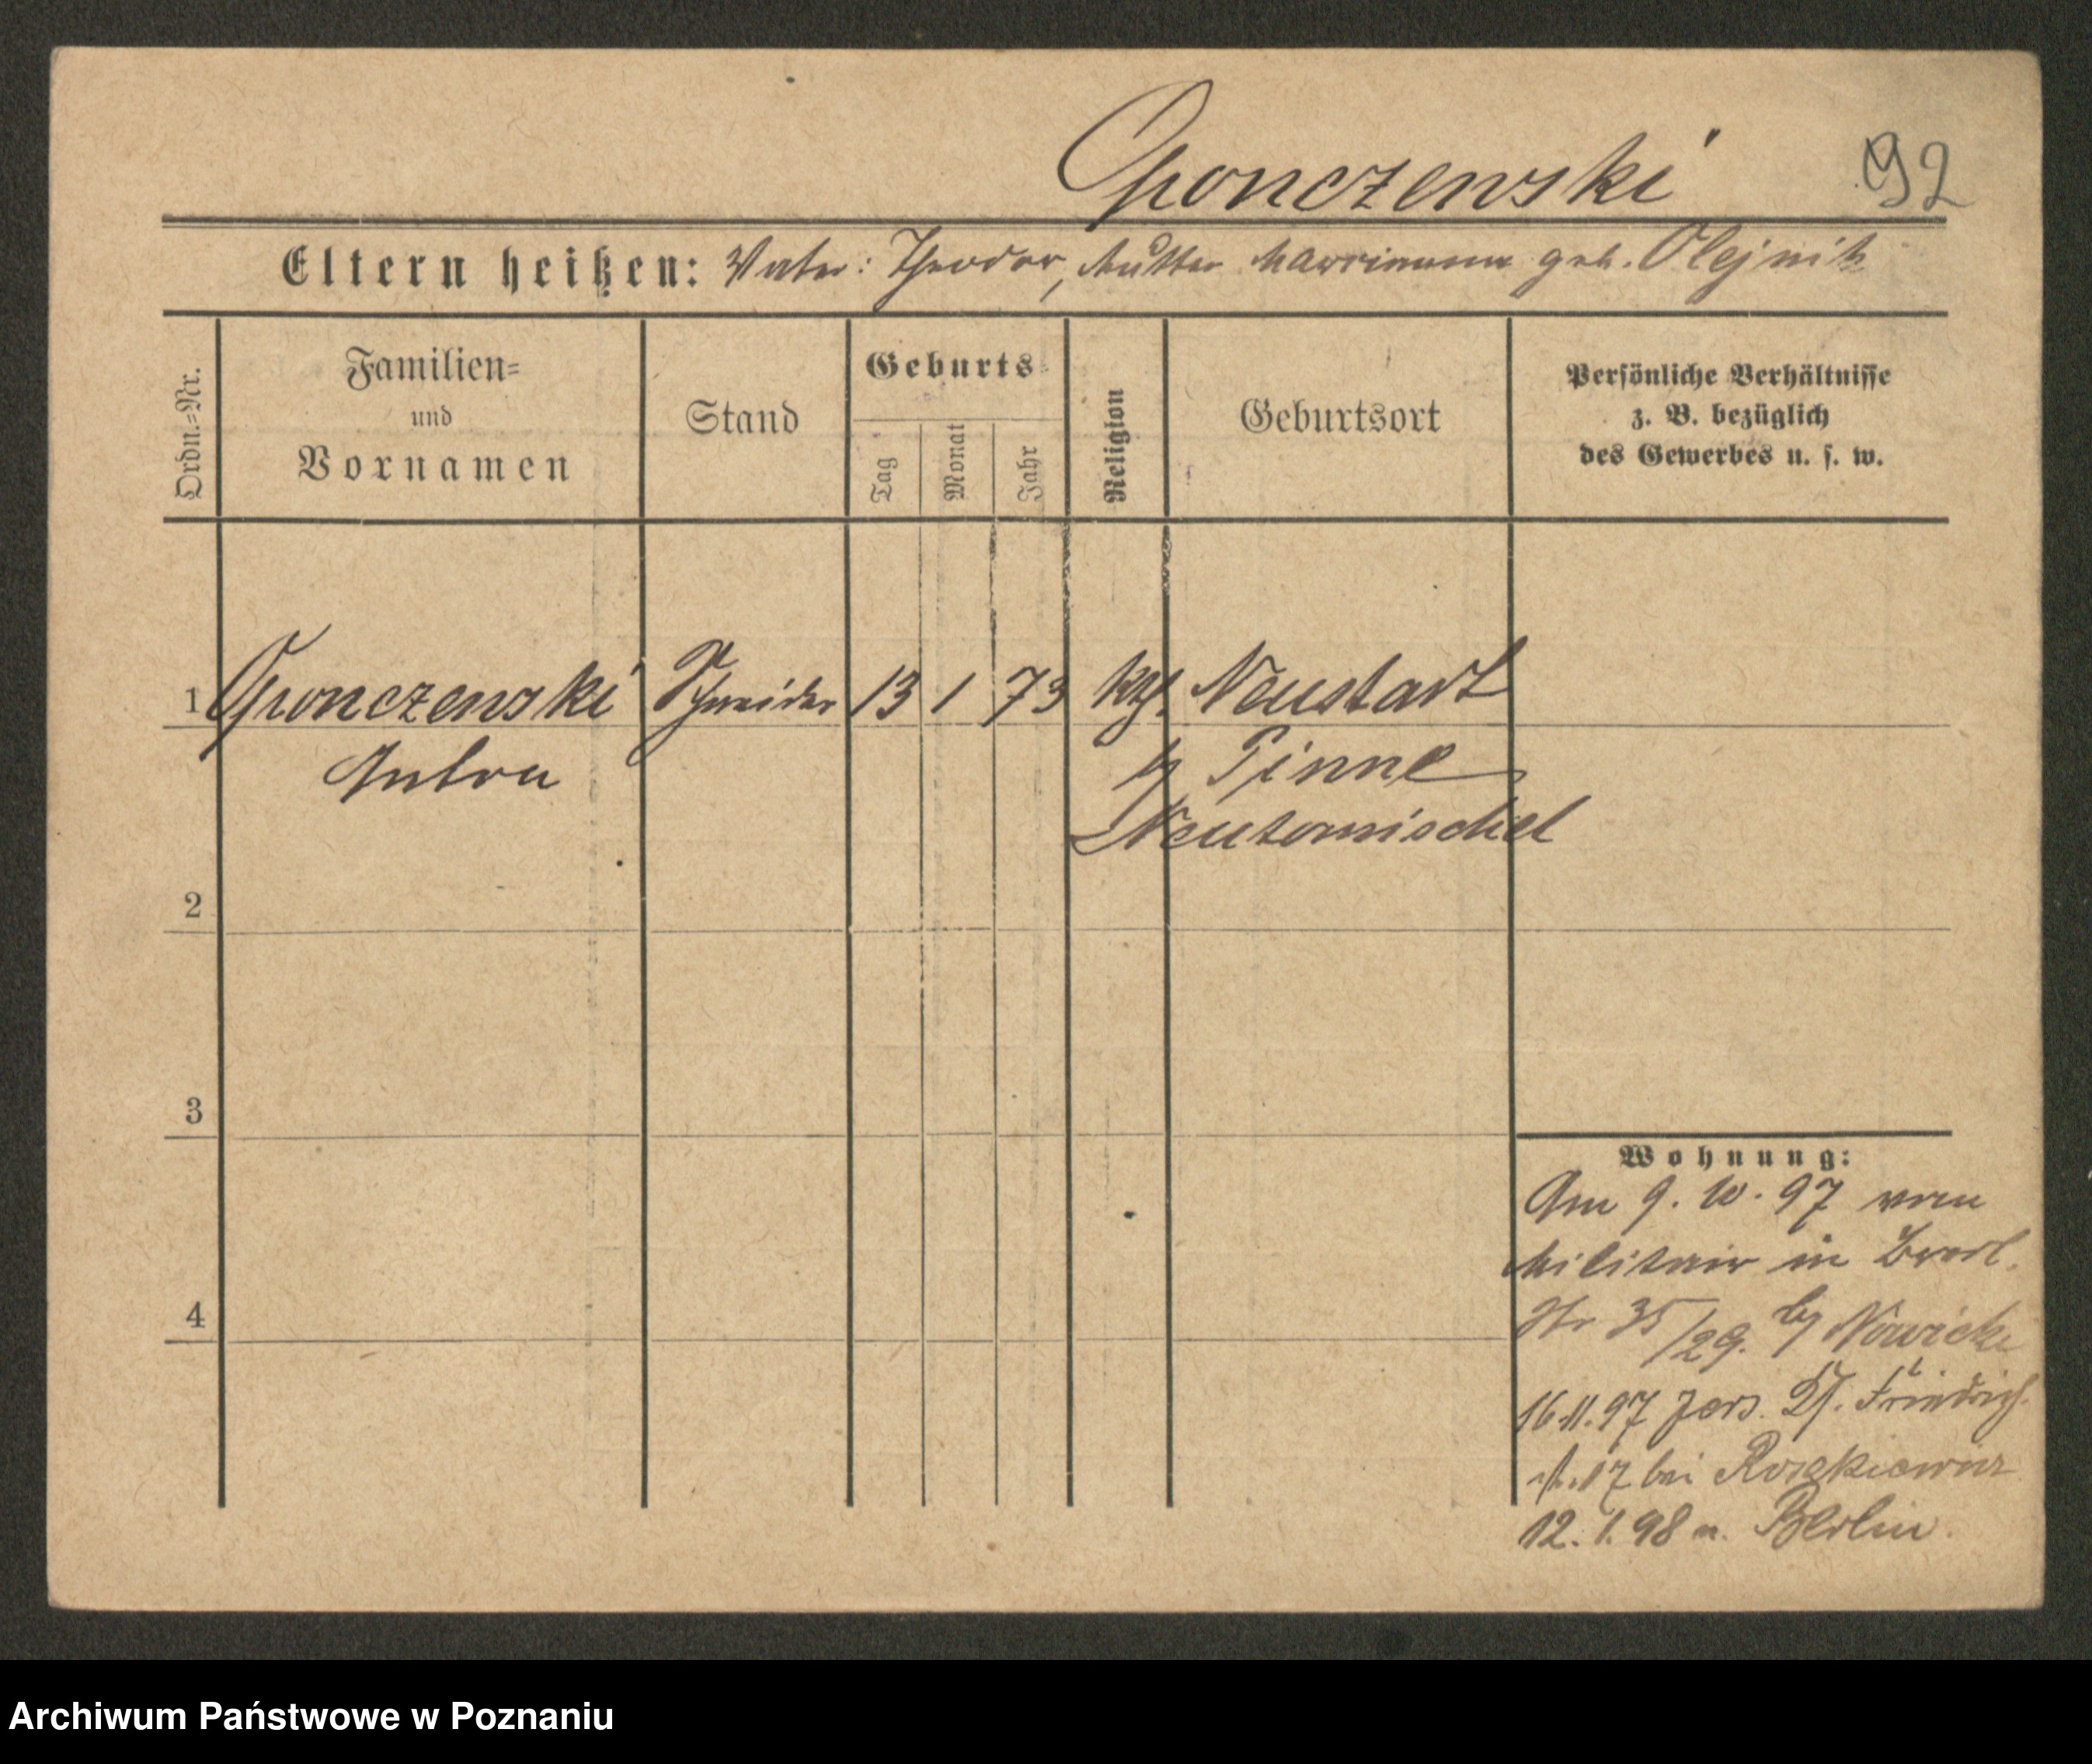 Gronczewski 92
Eltern heißen: Vater: Theodor, Mutter Marrianna geb. Olejnik
Ordn.=Nr.
Familien=
und
Vornamen
Stand
Geburts
Tag
Monat
Jahr
Religion
Geburtsort
Persönliche Verhältnisse
z. B. bezüglich
des Gewerbes u. s. w.
1 Gronczewski Schneider 13 1 73 kth. Neustadt
Anton b/ Pinne
Neutomischel
2
3
4
Wohnung:
Am 9. 10. 97 vom
Militair in Bresl.
Str 35/29. b/ Nowicki
16.11.97 Jers. Friedrich
17 bei Roszkiewicz
12. 1. 98 n. Berlin.
Archiwum Państwowe w Poznaniu